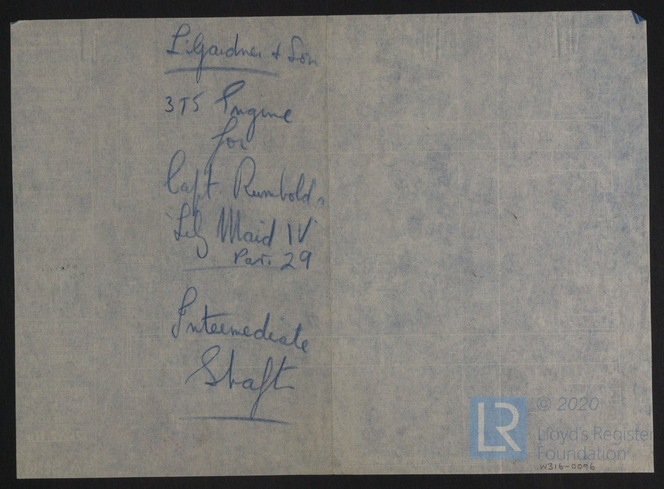 L. Gardner & Son
3T5 Engine
for
Capt. Rumbold's
'Lily Maid IV'
Par. 29
Intermediate
Shaft
LR © 2020
Lloyd's Register
Foundation
W316-0096